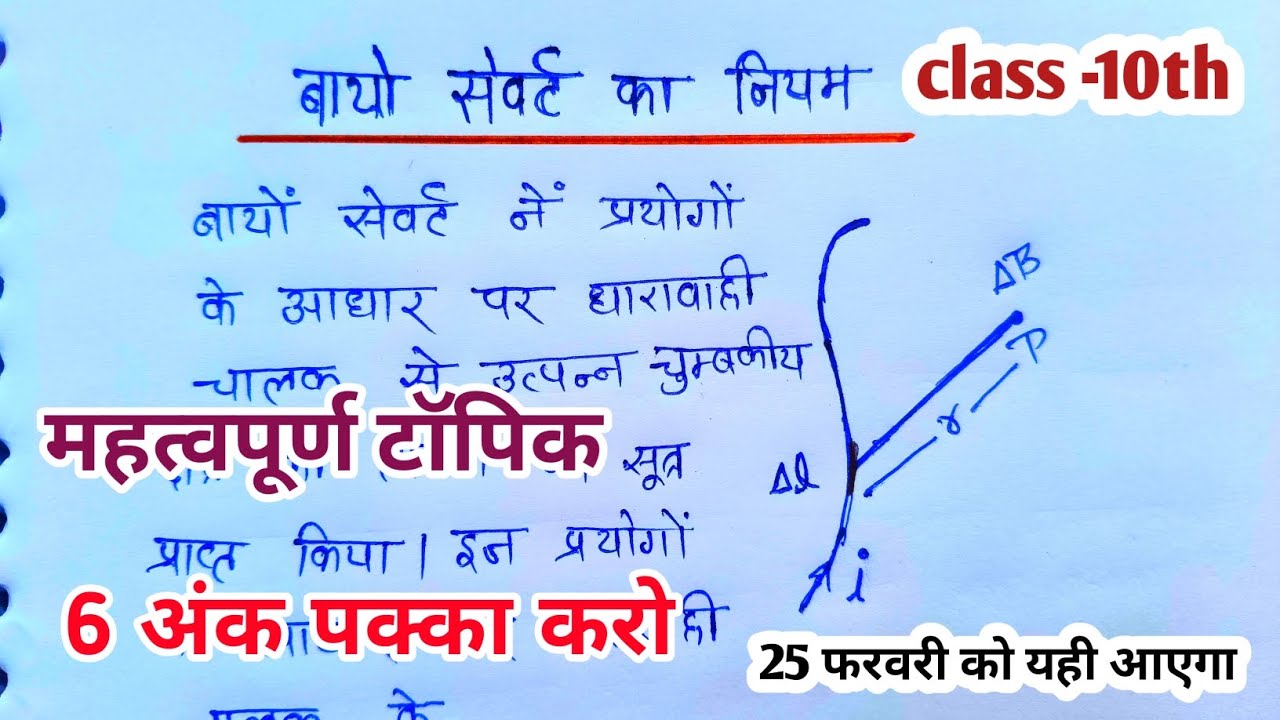 बायो सेवर्ट का नियम
class -10th
बायों सेवर्ट नें प्रयोगों
के आधार पर धारावाही
चालक से उत्पन्न चुम्बकीय
महत्वपूर्ण टॉपिक
सूत्र
प्राप्त किया। इन प्रयोगों
6 अंक पक्का करो
ही
के
ΔB
P
r
Δl
i
25 फरवरी को यही आएगा